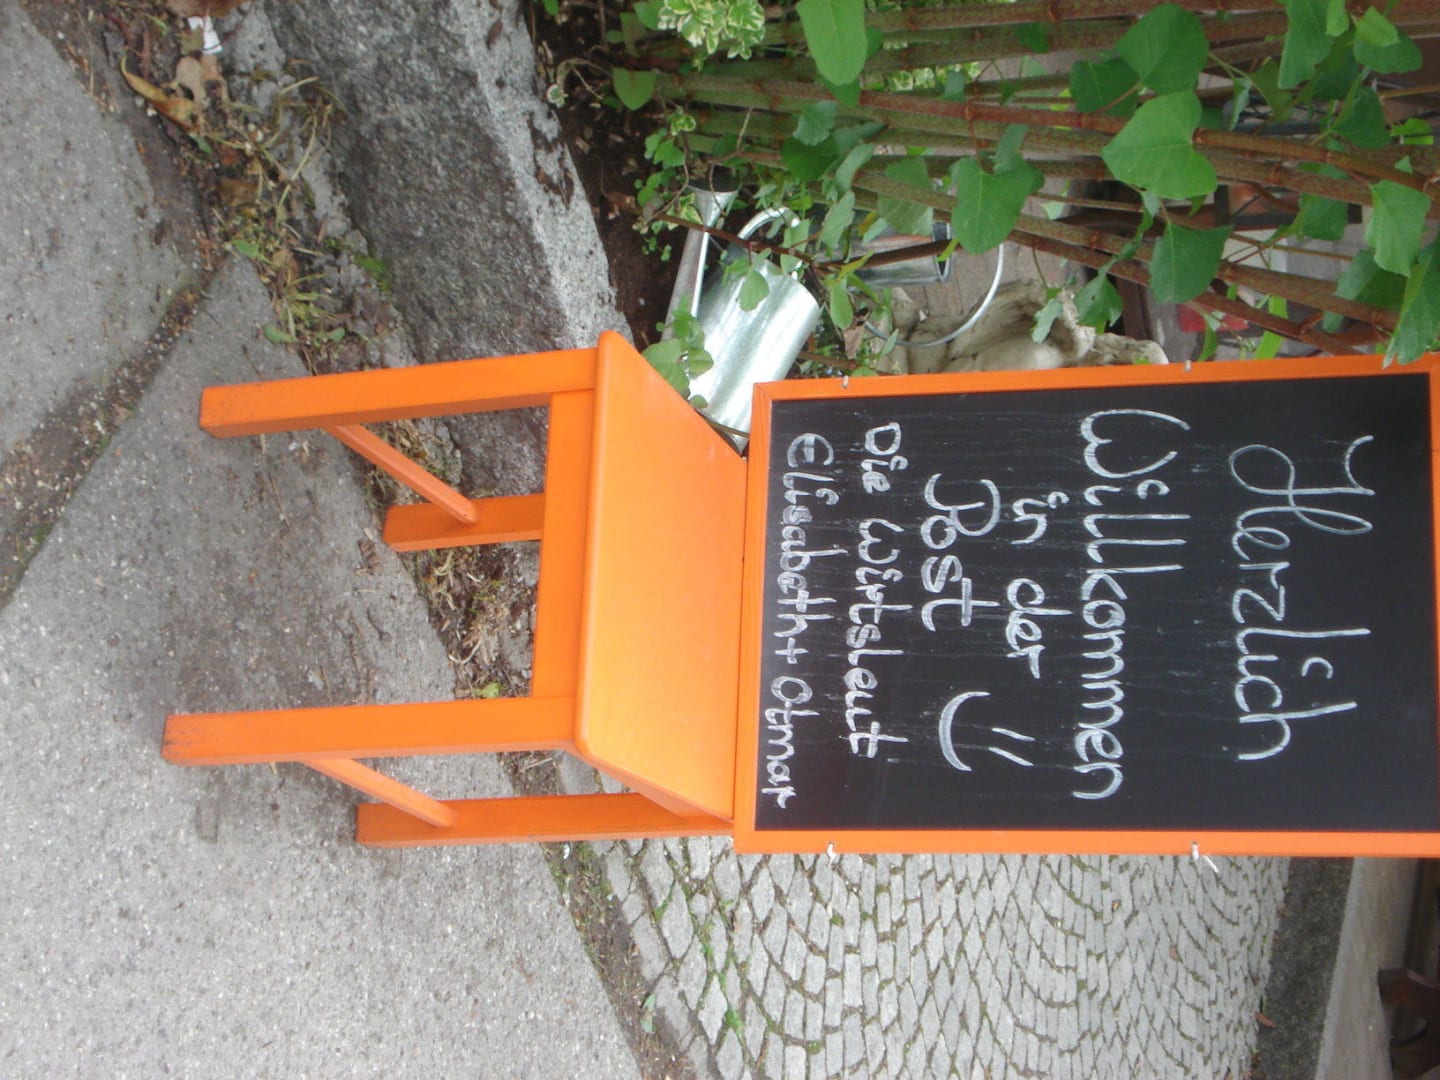 Herzlich
Willkommen
in der
Post
Die Wirtsleut
Elisabeth + Otmar